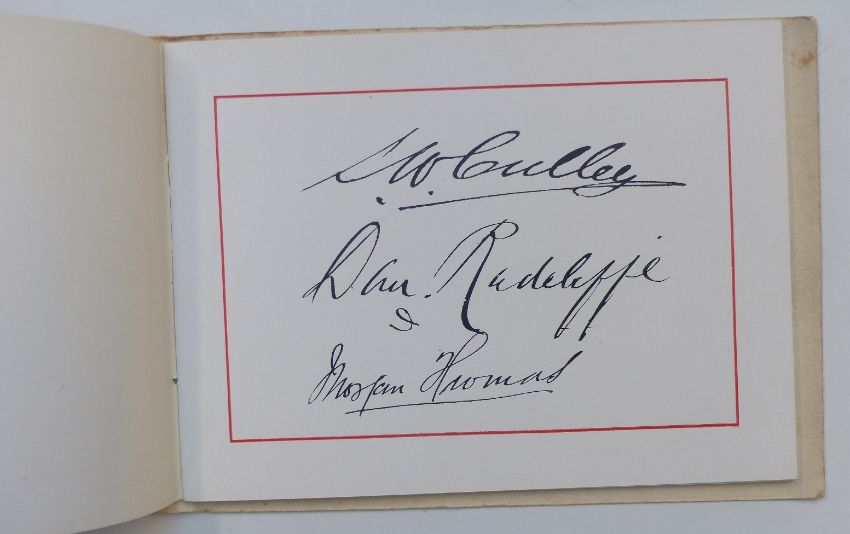 S. W. Culley
Dan. Radcliffe
Morgan Thomas